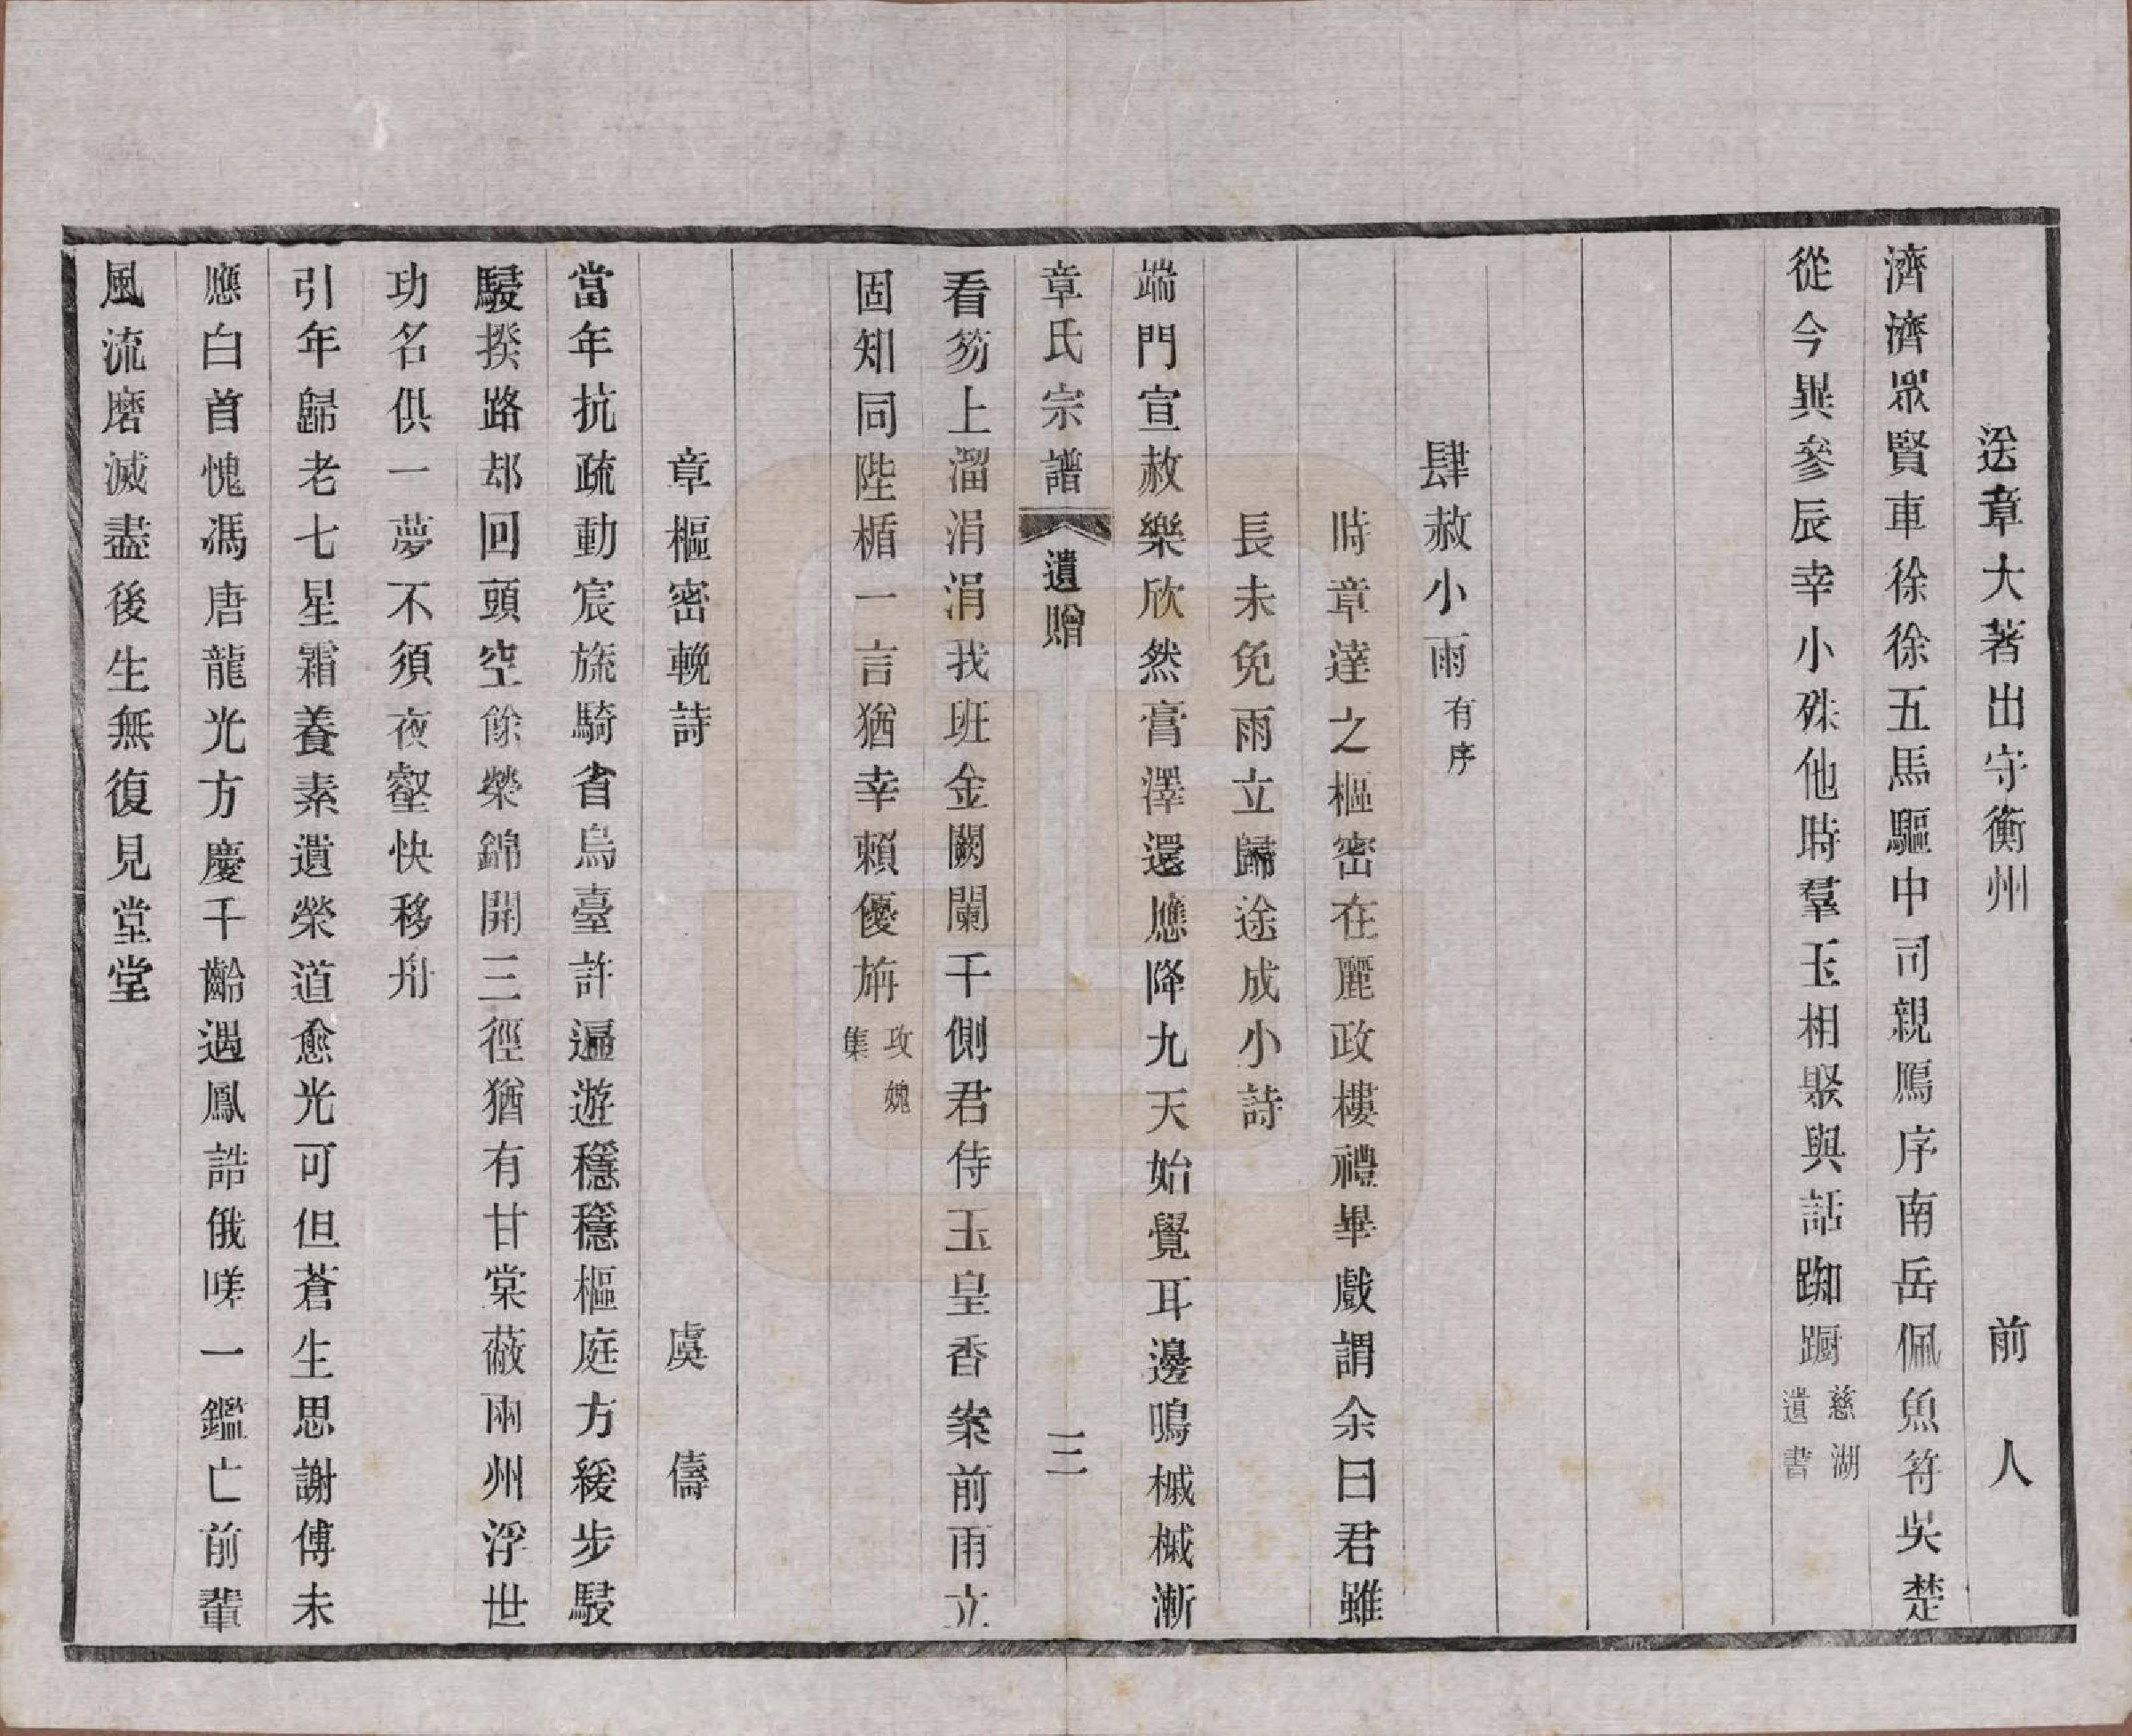 送章大著出守衡州　前人
濟濟眾賢車徐徐五馬驅中司親鴈序南岳佩魚符吳楚
從今異參辰幸小殊他時羣玉相聚與話踟躕慈湖遺書
肆赦小雨有序
時章達之樞密在麗政樓禮畢戲謂余曰君雖
長未免雨立歸途成小詩
端門宣赦樂欣然膏澤還應降九天始覺耳邊鳴槭槭漸
看笏上溜涓涓我班金闕闌干側君侍玉皇香案前雨立
固知同陛楯一言猶幸賴優旃攻媿集
章氏宗譜　遺贈　三
章樞密輓詩　虞儔
當年抗疏動宸旒騎省烏臺許遍遊穩穩樞庭方緩步駸
駸揆路却回頭空餘榮錦開三徑猶有甘棠蔽兩州浮世
功名俱一夢不須夜壑快移舟
引年歸老七星霜養素遺榮道愈光可但蒼生思謝傅未
應白首愧馮唐龍光方慶千齡遇鳳誥俄嗟一鑑亡前輩
風流磨滅盡後生無復見堂堂